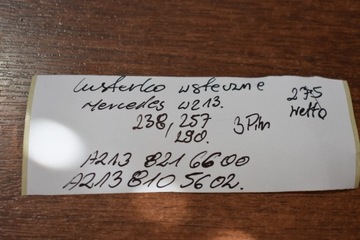 lusterko wsteczne
Mercedes W213.
238, 257
290.
3 Pin
275
netto
A213 821 6600
A213 810 5602.